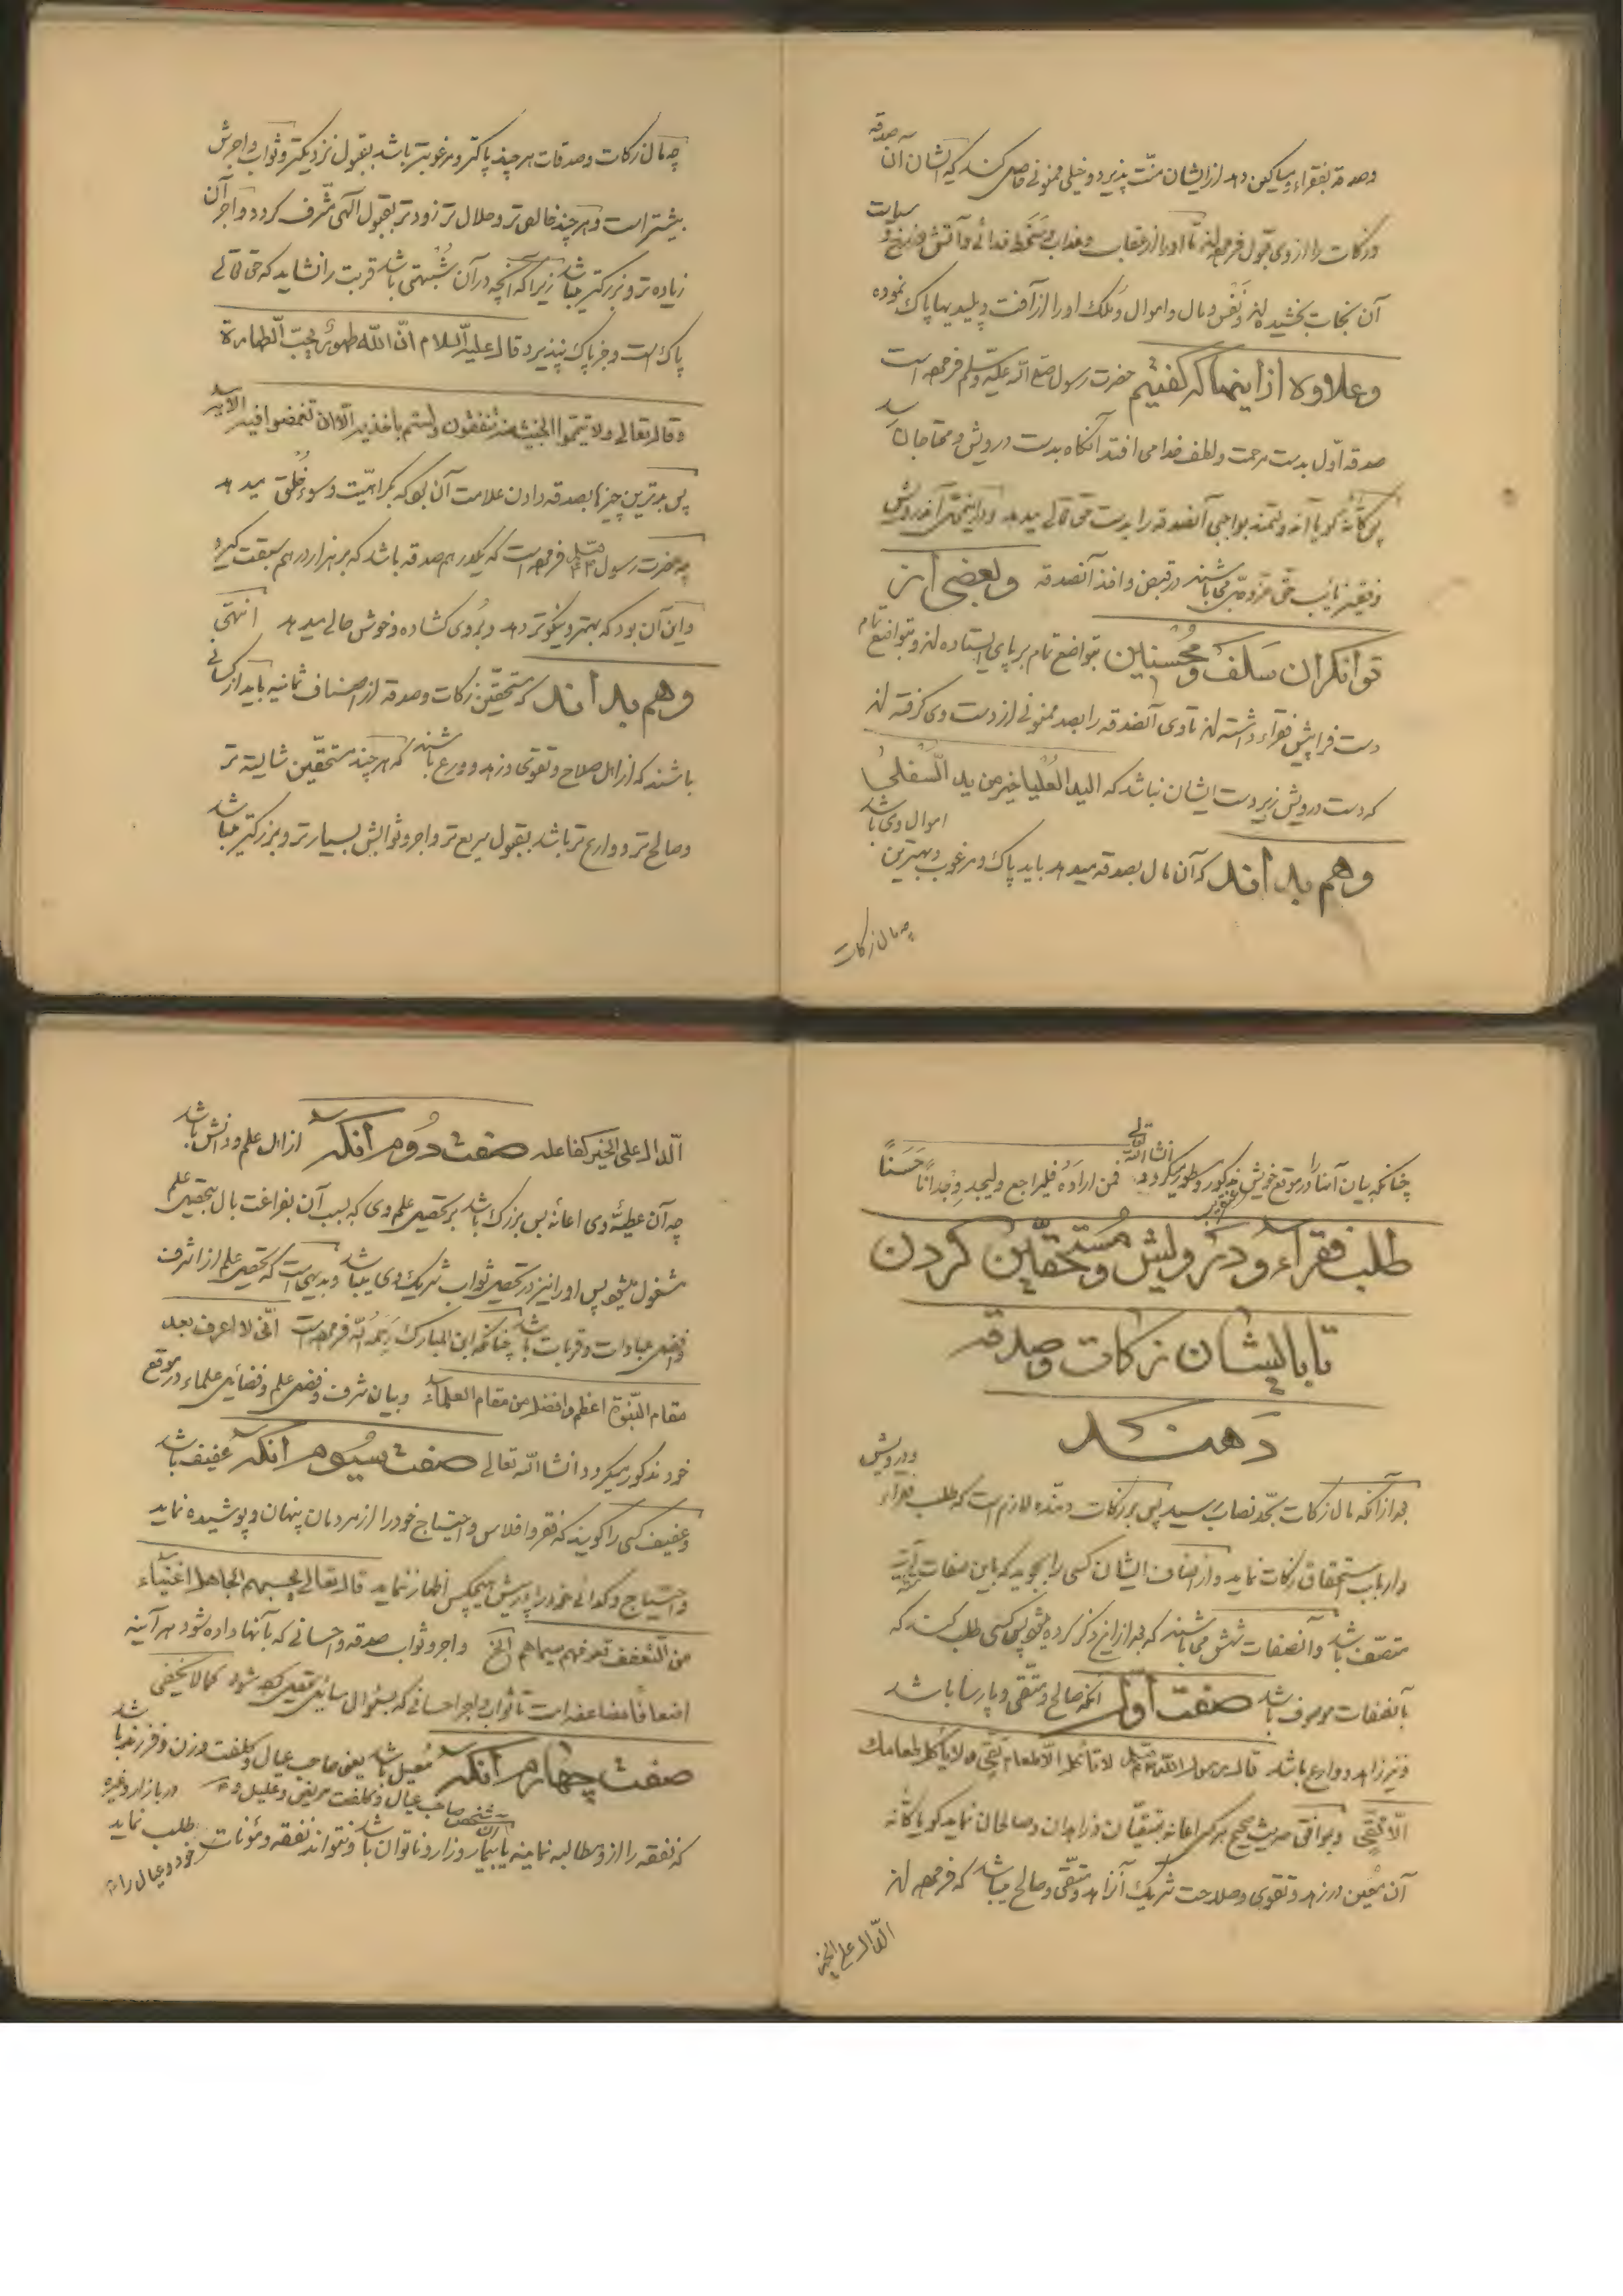 وصدقه بفقراء ومساکین دهد از ایشان منّت پذیرد وخیلی ممنونی حاصل کند که ایشان آن صدقه
وزکات را از وی قبول فرموده‌اند تا او را از عقاب وعذاب وسخط خدائی وآتش دوزخ و
آن نجات بخشیده‌اند ونفس ومال واموال وملک او را از آفت وپلیدیها پاک نموده
وعلاوه از اینها که گفتیم حضرت رسول صلی الله علیه وسلم فرموده است
صدقه اوّل بدست مرحمت ولطف خدا می افتد آنگاه بدست درویش ومحتاجان رسد
پس کأنّه گویا آن دولتمند بواجبی آنصدقه را بدست حق تعالی میدهد آن درویش
وفقیر نایب حق عزّ وجلّ می باشند در قبض واخذ آنصدقه وبعضی از
توانگران سلف ومحسنین بتواضع تمام بر پای ایستاده‌اند وبتواضع تمام
دست فرا پیش فقراء داشته‌اند تا وی آنصدقه را بصد ممنونی از دست وی گرفته‌اند
که دست درویش زیر دست ایشان نباشد که الید العلیا خیر من ید السفلی
وهم بدانند که آن مال بصدقه میدهد باید پاک ومرغوب وبهترین اموال وی باشد
چه مال زکات
چه مال زکات وصدقات هر چند پاکتر ومرغوبتر باشد بقبول نزدیکتر وثواب واجرش
بیشتر است وهر چند خالص تر وحلال تر زودتر بقبول آلهی مشرف گردد واجر آن
زیاده تر وبزرگتر میباشد زیرا که آنچه در آن شبهتی باشد قربت را نشاید که حق تعالی
پاک است وجز پاک نپذیرد قال علیه السلام انّ الله طهور یحبّ الطهارة
وقال تعالی ولا تیمّموا الخبیث منه تنفقون ولستم بآخذیه الّا ان تغمضوا فیه الآیه
پس بدترین چیزها بصدقه دادن علامت آن بود که بکراهیّت وسوء خلق میدهد
چه حضرت رسول فرموده است که یکدرهم صدقه باشد که بر هزار درهم سبقت گیرد
واین آن بود که بهتر ونیکوتر دهد وبروی گشاده وخوش حالی میدهد انتهی
وهم بدانند که مستحقین زکات وصدقه از اصناف ثمانیه باید از کسانی
باشند که از اهل صلاح وتقوی وزهد وورع باشند که هر چند مستحقّین شایسته تر
وصالح تر ووارع تر باشد بقبول سریع تر واجر وثوابش بسیارتر وبزرگتر میباشد
چنانکه بیان آنها در موقع خویش مذکور ومسطور میگردد انشا الله تعالی فمن اراده فلیراجع ولیجد وجدانا حسنًا
طلب فقراء ودرویش ومستحقّین کردن
تا بایشان زکات وصدقه
دهند
بعد از آنکه مال زکات بحد نصاب رسید پس بر زکات دهنده لازم است که طلب فقراء ودرویش
وارباب استحقاق زکات نماید واز اصناف ایشان کسی را بجوید که باین صفات آتیه
متصف باشد وآنصفات شش می باشند که بعد از این ذکر کرده میشود پس کسی طلب کنند که
بآنصفات موصوف باشد صفت اول آنکه صالح ومتقی وپارسا باشد
ونیز زاهد ووارع باشد قال رسول الله لا تأکل الّا طعام تقی ولا یأکل طعامک
الّا تقی وبموافق حدیث صحیح هر کس اعانه بمتقیان وزاهدان وصالحان نماید گویا کأنّه
آن معین در زهد وتقوی وصلاحت شریک آن زاهد ومتقی وصالح میباشد که فرموده‌اند
الدّال علی الخیر
الدّال علی الخیر کفاعله صفت دوم آنکه از اهل علم ودانش باشد
چه آن عطیّه وی اعانه بس بزرگ باشد بر تحصیل علم وی که بسبب آن بفراغت بال بتحصیل علم
مشغول میشود پس او را نیز در تحصیل ثواب شریک وی میباشد وبدیهی است که تحصیل علم از اشرف
وافضل عبادات وقربات باشد چنانکه ابن المبارک رحمه الله فرموده است انّی لا اعرف بعد
مقام النبوّة اعظم وافضل من مقام العلماء وبیان شرف وفضل علم وفضائل علماء در موقع
خود مذکور میگردد انشا الله تعالی صفت سیوم آنکه عفیف باشد
وعفیف کسی را گویند که فقر وافلاس واحتیاج خود را از مردمان پنهان وپوشیده نماید
واحتیاج وگدائی خود را پیش هیچکس اظهار ننماید قال تعالی یحسبهم الجاهل اغنیاء
من التعفف تعرفهم بسیماهم الخ واجر وثواب صدقه واحسانی که بآنها داده شود هر آینه
اضعافًا مضاعفه است تا ثواب واجر احسانی که بسؤال سایل کما لا یخفی
صفت چهارم آنکه معیل باشد یعنی صاحب عیال وکلفت وزن وفرزند باشد
صاحب عیال وکلفت مریض وعلیل در بازار وغیره
که نفقه را از او مطالبه نمایند یا بیمار وزار وناتوان باشد ونتواند نفقه ومؤنات خود وعیال را طلب نماید